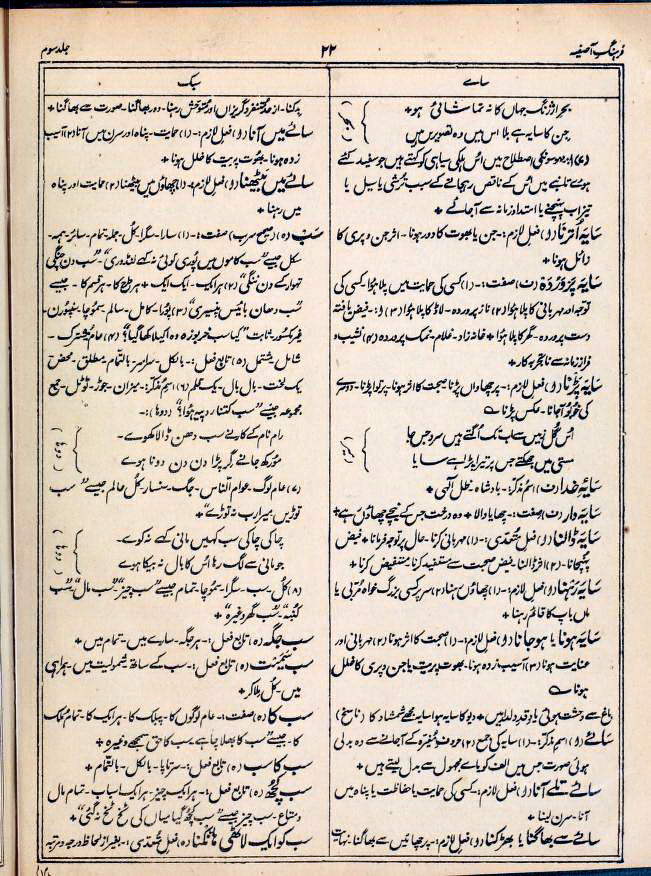 فرہنگِ آصفیہ
۲۲
جلد سوم
سائے
سبک
بحر ارژنگ جہاں کا نہ تماشائی ہو +
جن کا سایہ ہے بلا اس میں وہ تصویریں ہیں
(بحر)
ہوئے تانبے میں اُس کے ناقص رہجانے کے سبب تُرشی یا سیل یا
تیزاب پہنچنے یا امتداد زمانہ سے آجائے +
سایہ اُترنا (و) فعل لازم:۔ جن یا بھوت کا دور ہونا۔ اثر جن و پری کا
زائل ہونا +
سایہ پَروَردَہ (ف) صفت:۔ (۱) کسی کی حمایت میں پلا ہوا کسی کی
توجہ اور مہربانی کا پلا ہوا (۲) ناز پروردہ۔ لاڈ کا پلا ہوا (۳) فیض یافتہ
دست پروردہ۔ گھر کا پلا ہوا + خانہ زاد۔ غلام۔ نمک پروردہ (۴) نشیب و
فراز زمانہ سے ناتجربہ کار +
سایہ پڑنا (و) فعل لازم:۔ پرچھاواں پڑنا صحبت کا اثر ہونا۔ پرتوا پڑنا۔ دوسرے
کی خو بو آجانا۔ عکس پڑنا ؎
اُس گُل نہیں سے اب تک اُگتے ہیں سرو جس جا
مستی میں جھکتے جس پر تیرا پڑا ہے سایا
(میر)
سایۂ خدا (ف) اسم مذکر:۔ بادشاہ۔ ظل الٰہی +
سایہ دار (ف) صفت:۔ چھایا والا + وہ درخت جس کے نیچے چھاؤں ہے +
سایہ ڈالنا (و) فعل متعدی:۔ (۱) مہربانی کرنا۔ حال پر توجہ فرمانا + فیض
پہنچانا۔ (۲) اثر ڈالنا۔ فیض صحبت سے مستفید کرنا۔ مستفیض کرنا +
سایہ رہنا (و) فعل لازم:۔ (۱) چھاؤں رہنا (۲) سر پر کسی بزرگ خواہ مُربّی یا
ماں باپ کا قائم رہنا +
سایہ ہونا یا ہوجانا (و) فعل لازم:۔ (۱) صحبت کا اثر ہونا (۲) مہربانی اور
عنایت ہونا (۳) آسیب زدہ ہونا۔ بھوت پریت یا جن و پری کا خلل
ہونا ؎
باغ سے وحشت ہوتی یاد قدِ دلدار میں + دیو کا سایہ ہوا سایہ مجھے شمشاد کا (ناسخ)
سائے (و) اسم مذکر:۔ (۱) سایہ کی جمع (۲) حروف مُغیرہ کے آجانے سے وہ بدلی
ہوئی صورت جس میں الف کو یائے مجہول سے بدل لیتے ہیں +
سائے تلے آنا (و) فعل لازم:۔ کسی کی حمایت یا حفاظت یا پناہ میں
آنا۔ سرن لینا +
سائے سے بھاگنا یا بھڑکنا (و) فعل لازم:۔ پرچھائیں سے بھاگنا۔ نہایت
بدکنا۔ از حد متنفر و گریزاں اور متوحش رہنا۔ دور بھاگنا۔ صورت سے بھاگنا +
سائے میں آنا (و) فعل لازم:۔ (۱) حمایت۔ پناہ اور سرن میں آنا (۲) آسیب
زدہ ہونا۔ بھوت پریت کا خلل ہونا +
سائے میں بیٹھنا (و) فعل لازم:۔ (۱) چھاؤں میں بیٹھنا (۲) حمایت اور پناہ
میں رہنا +
سَب (ہ) (صحیح سرب) صفت:۔ (۱) سارا۔ سگرا۔ کُل۔ جملہ۔ تمام۔ سائر۔ ہمہ۔
سکل جیسے "سب کاموں میں پوری کوئی نہ کہے لنڈوری"۔ "سب دن چنگی
تہوار کے دن ننگی" (۲) ہر ایک۔ ایک ایک + ہر طرح کا۔ ہر قسم کا۔ جیسے
"سب دھان بائیس پنسیری" (۳) پورا۔ کامل۔ سالم۔ سموچا۔ سنپورن۔
غیر مکسور۔ ثابت "کیا سب خربوزہ وہ اکیلا کھا گیا؟" (۴) عام مشترک۔
شامل۔ مشتمل (۵) تابع فعل:۔ بالکل۔ سراسر۔ بالتمام۔ مطلق۔ محض۔
یک لخت۔ بال بال۔ یک قلم (۶) اسم مذکر:۔ میزان۔ جوڑ۔ ٹوٹل۔ جمع
مجموعہ جیسے "سب کتنا روپیہ ہوا؟" (دوہا):۔
رام نام کے کارنے سب دھن ڈالا کھوے۔
مُورکھ جانے گر پڑا دن دن دونا ہوے
(دوہا)
(۷) عام لوگ۔ عوام الناس۔ جگ۔ سنسار۔ کُل عالم جیسے "سب
توڑیں میرا رب نہ توڑے" +
چاکی چاکی سب کہیں مانی کہے نہ کوے۔
جو مانی سے لگ رہا اُس کا بال نہ بیکا ہوے
(دوہا)
(۸) کُل۔ سب۔ سگرا۔ سموچا۔ تمام جیسے "سب چیز" "سب مال" "سب
کنبہ" "سب گھر وغیرہ" +
سب جگہ (ہ) تابع فعل:۔ ہر جگہ۔ سارے میں۔ تمام میں +
سب سمیت (ہ) تابع فعل:۔ سب کے ساتھ۔ شمولیت میں۔ ہمراہی
میں۔ کُل ملا کر +
سب کا (ہ) صفت:۔ عام لوگوں کا۔ پبلک کا۔ ہر ایک کا۔ تمام ملک
کا۔ جیسے "سب کا بھلا چاہے۔ سب کا حق سمجھے وغیرہ" +
سب کا سب (ہ) تابع فعل:۔ سرتاپا۔ بالکل۔ بالتمام +
سب کچھ (ہ) تابع فعل:۔ ہر ایک چیز۔ ہر ایک اسباب۔ تمام مال
و متاع۔ سب چیز جیسے "سب کچھ گیا میاں کی ٹخ ٹخ نہ گئی" +
سب کو ایک لاٹھی ہانکنا (ہ) فعل متعدی:۔ بغیر از لحاظ درجہ و مرتبہ